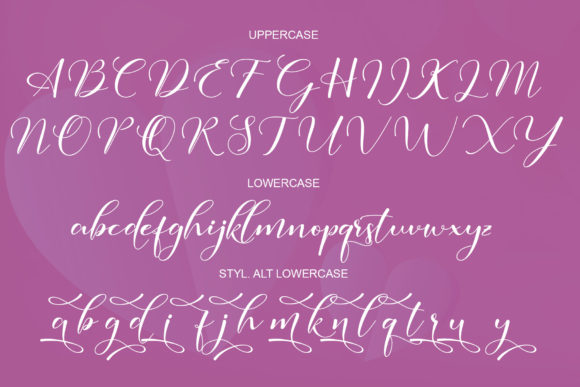 UPPERCASE
ABCDEFGHIJKLM
NOPQRSTUVWXY
LOWERCASE
abcdefghijklmnopqrstuvwxyz
STYL. ALT LOWERCASE
abgdi fjhmknlqtru y